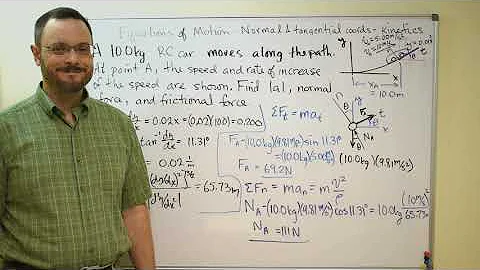 Equations of Motion - Normal & tangential coords - kinetics
A 10.0kg RC car moves along the path.
At point A, the speed and rate of increase
of the speed are shown. Find |a|, normal
force, and frictional force
dy/dx = 0.02x = (0.02)(10) = 0.200
tan⁻¹ dy/dx = 11.31°
= 0.02 1/m
= 65.73m
ΣFt = mat
FA-(10.0kg)(9.81m/s²)sin 11.31°
=(10.0kg)(5.00m/s²)
FA = 69.2N
ΣFn = man = m v²/ρ
NA-(10.0kg)(9.81 m/s²)cos11.31° = 10.0kg (10m/s)²/65.73m
NA = 111N
y
A
x
xA
= 10.0m
n
t
θ
NA
θ
(10.0kg)(9.81m/s²)